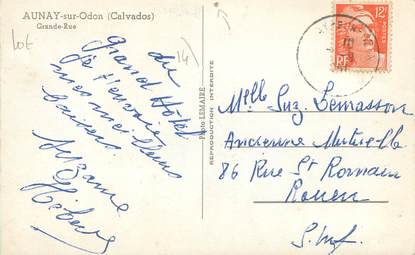 AUNAY-sur-Odon (Calvados)
Grande-Rue
Lot
14
du
Grand Hôtel
je t'envoie
mes meilleurs
baisers
Suzanne
Photo LEMAIRE
REPRODUCTION INTERDITE
12F
RF
Melle Suz. Lemasson
Ancienne Mutuelle
86 Rue St Romain
Rouen
S. Inf.